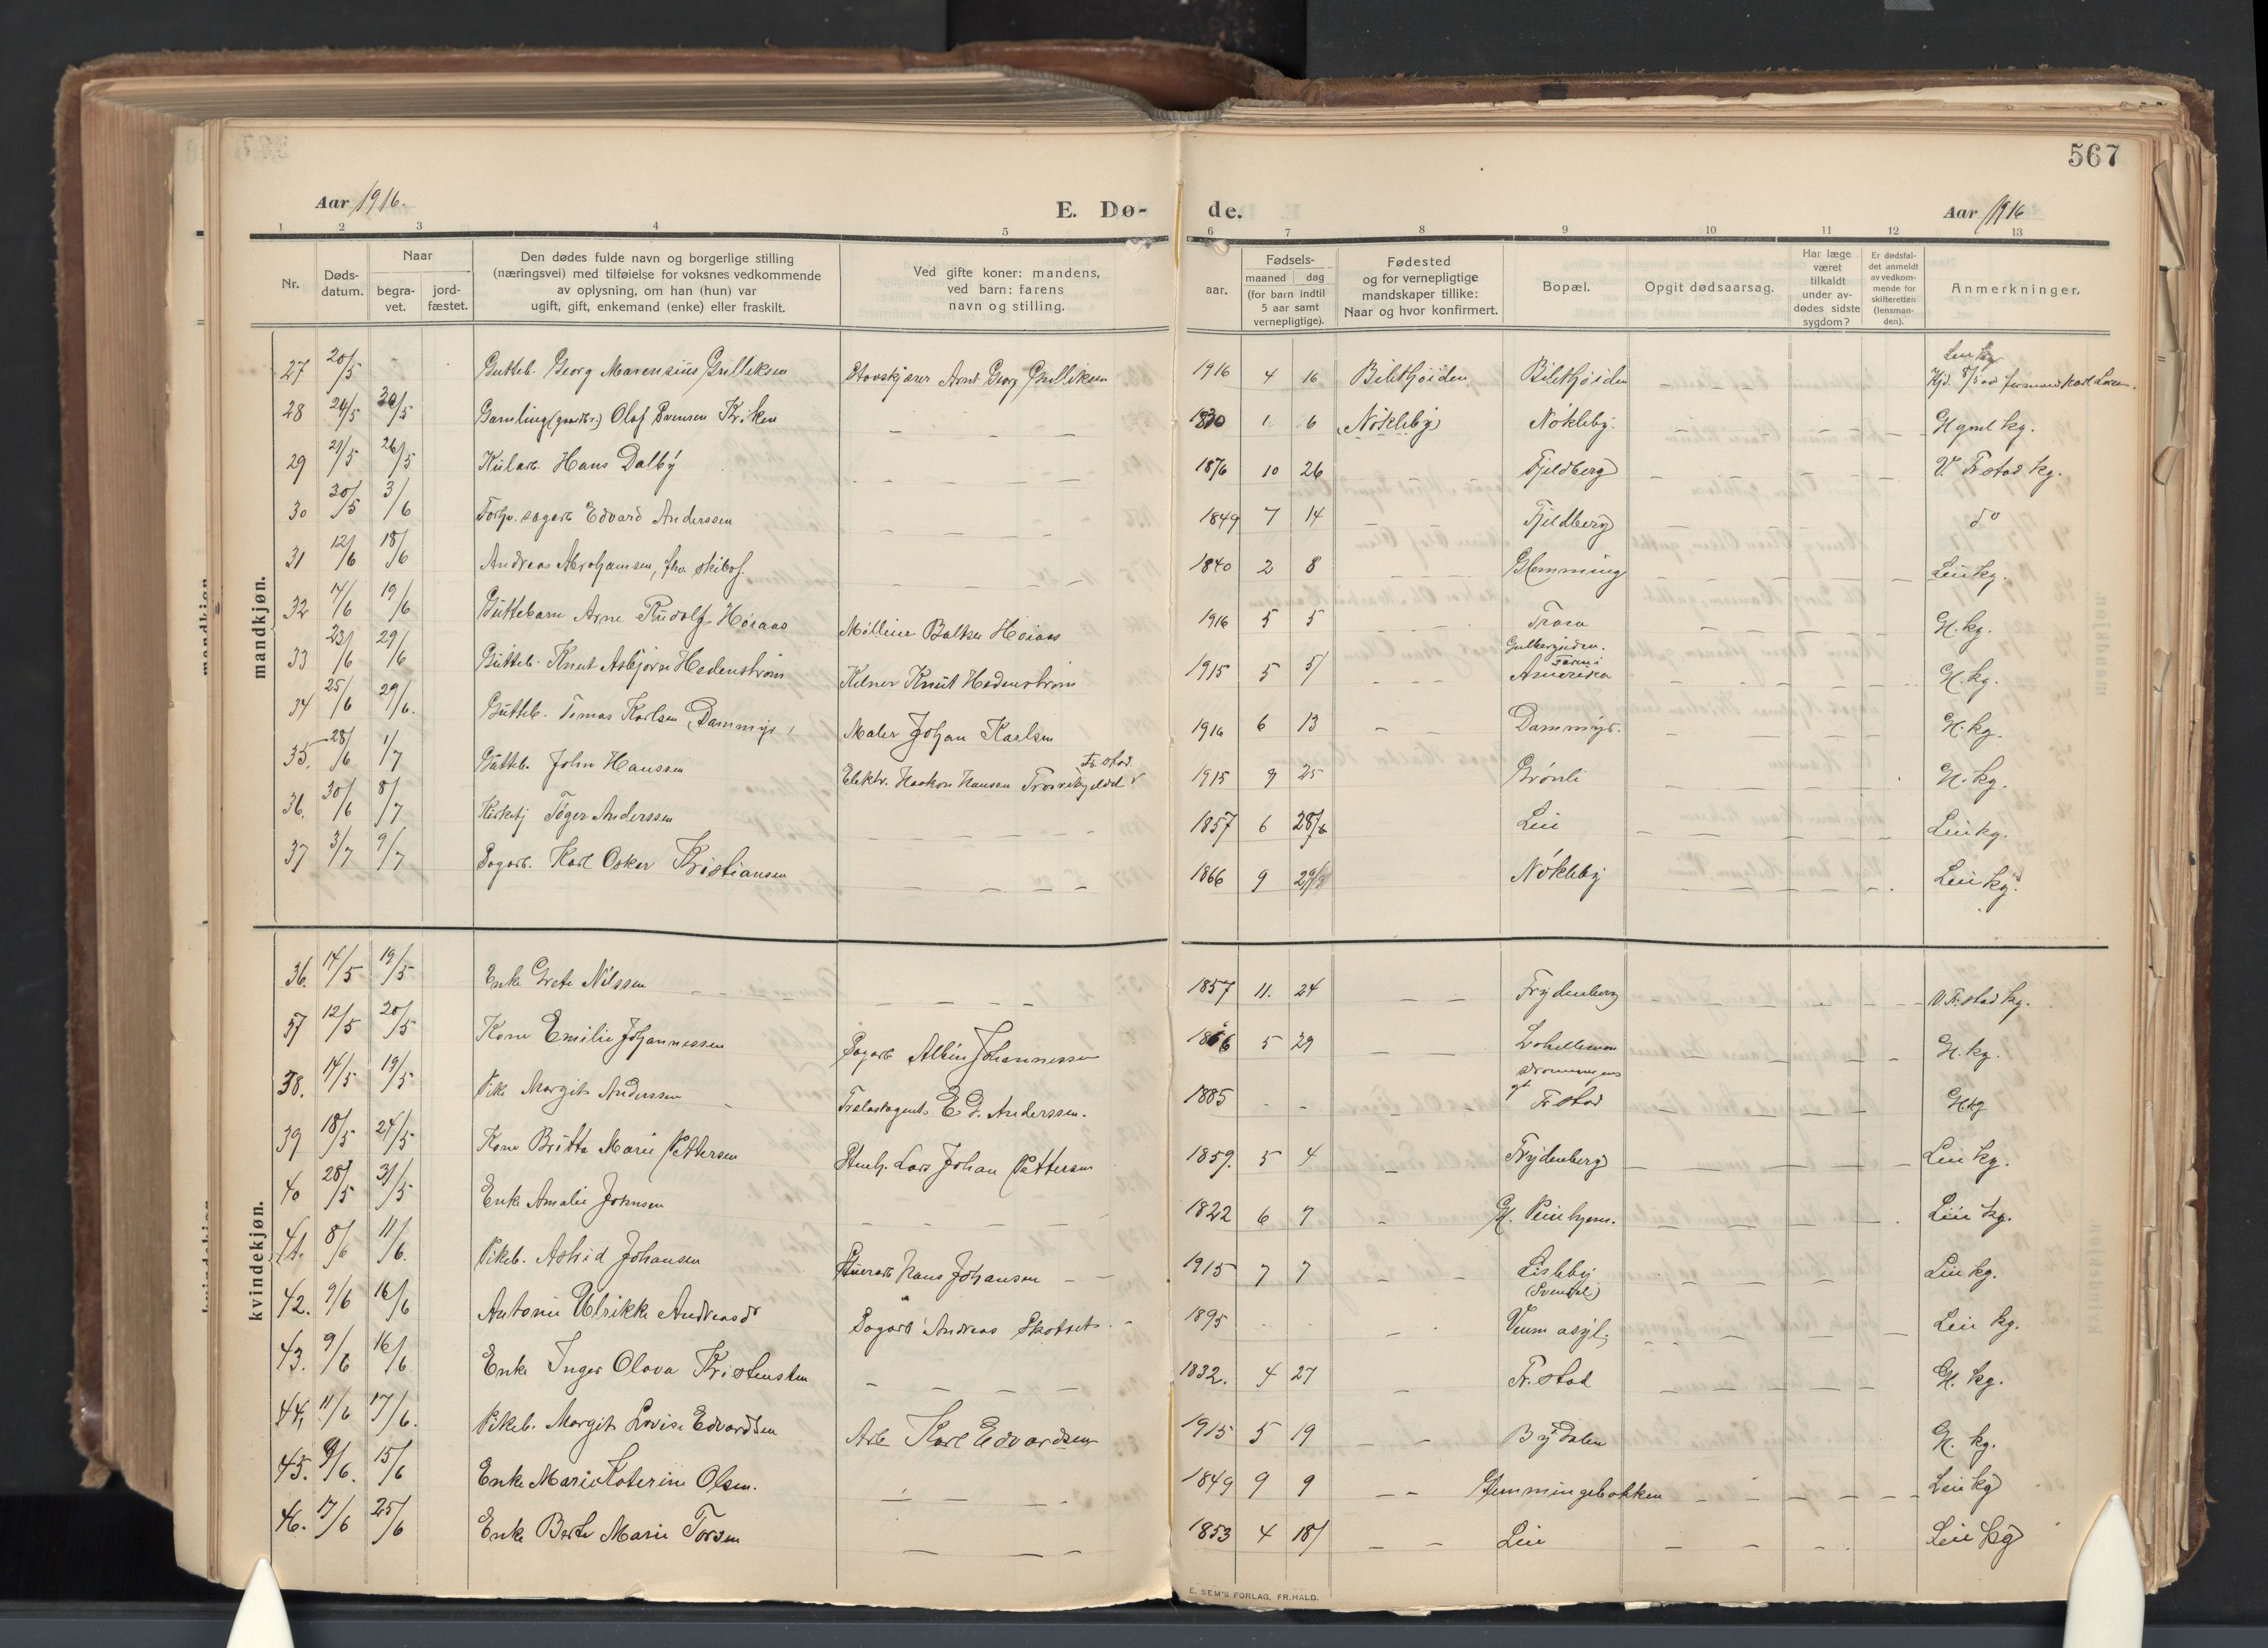 567
Aar 1916.
E. Dø-
de.
Aar 1916
1 2 3 4 5 6 7 8 9 10 11 12 13
Nr.
Døds-
datum.
Naar
begra-
vet.
jord-
fæstet.
Den dødes fulde navn og borgerlige stilling
(næringsvei) med tilføielse for voksnes vedkommende
av oplysning, om han (hun) var
ugift, gift, enkemand (enke) eller fraskilt.
Ved gifte koner: mandens,
ved barn: farens
navn og stilling.
Fødsels-
aar.
maaned dag
(for barn indtil
5 aar samt
vernepligtige).
Fødested
og for vernepligtige
mandskaper tillike:
Naar og hvor konfirmert.
Bopæl.
Opgit dødsaarsag.
Har læge
været
tilkaldt
under av-
dødes sidste
sygdom?
Er dødsfal-
det anmeldt
av vedkom-
mende for
skifteretten
(lensman-
den).
Anmerkninger.
mandkjøn.
27 20/5 Gutteb. Georg Marensius Gulliksen Arnt Georg Gulliksen 1916 4 16
28 24/5 30/5 Gamling Olaf Svensen Kriken — — — 1830 1 6 (Nökleby) Nökleby. Gl gml kg.
29 21/5 26/5 Hans Dalby — — — 1876 10 26 Fjeldberg V. Fr.stad kg.
30 30/5 3/6 Edvard Anderssen — — — 1849 7 14 Fjeldberg do
31 12/6 18/6 Andreas Abrahamsen, — — — 1840 2 8 Glemminge Leie kg.
32 14/6 19/6 Guttebarn Arne Rudolf Høiaas Baltzer Høiaas 1916 5 5 Trara Gl. kg.
33 23/6 29/6 Gutteb. Knut Asbjørn Hedenstrøm Kelner Knut Hedenstrøm 1915 5 5 Amerika Gl. kg.
34 25/6 29/6. Gutteb. Tomas Karlsen (Dammyr) Maler Johan Karlsen 1916 6 13 Dammyr. Gl. kg.
35. 28/6 1/7 Gutteb. John Hanssen Elektr. Haakon Hanssen Fr.stad. 1915 9 25 Grønli Gl. kg.
36. 30/6 8/7 Tøger Anderssen — — — 1857 6 28/6 Leie Leie kg.
37 3/7 9/7 Sagarb. Karl Oskar Kristiansen — — — 1866 9 29/9 Nökleby Leie kg.
kvindekjøn.
36. 14/5 19/5 Enke Grete Nilssen — — — 1857 11. 24 Frydenberg V. Fr.stad kg.
37 12/5 20/5 Kone Emilie Johannessen Sagarb Albin Johannessen 1866 5 29 Gl. kg.
38. 14/5 19/5 Pike Margit Anderssen Trælastagent E. D. Anderssen. 1885 - - Fr.stad Gl. kg
39 18/5 24/5 Kone Britta Marie Pettersen Stenh. Lars Johan Pettersen 1859. 5 4 Frydenberg Leie kg.
40 28/5 31/5 Enke Amalie Johnsen — — — 1822 6 7 Gl. Pleiehjem. Leie kg.
41. 8/6 11/6. Pikeb. Astrid Johansen Hans Johansen 1915 7 7 Lisleby Leie kg.
42. 9/6 16/6 Antonie Ulrikke Andreasd Sagarb Andreas 1895 Veum asyl. Leie kg.
43. 9/6 16/6 Enke Inger Olava Kristensten — — — 1832. 4 27 Fr.stad Gl. kg.
44. 11/6 17/6. Pikeb. Margit Lovise Edvardsen Arb Karl Edvardsen 1915 5 19 Bydalen Gl. kg.
45. 9/6. 15/6 Enke Marie Katerine Olsen. — — — 1849 9 9 Glemmingebakken Leie kg
46. 17/6 25/6 Enke Berte Marie Torsen — — — 1853 4 18 Leie Leie kg
E. SEM'S FORLAG, FR.HALD.